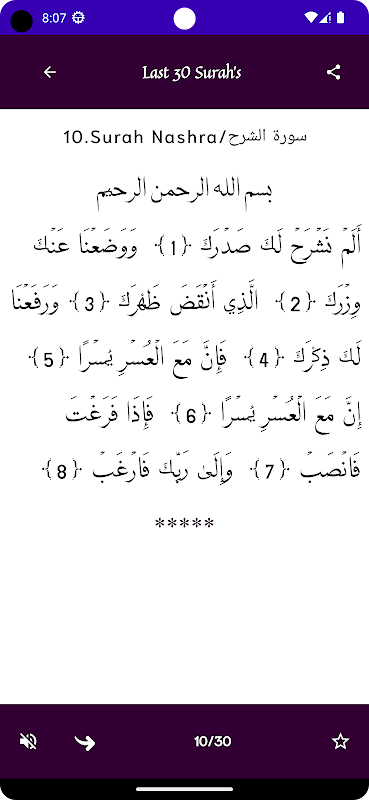 8:07
Last 30 Surah's
10.Surah Nashra/سورة الشرح
بسم الله الرحمن الرحيم
أَلَمْ نَشْرَحْ لَكَ صَدْرَكَ {1} وَوَضَعْنَا عَنْكَ
وِزْرَكَ {2} الَّذِي أَنْقَضَ ظَهْرَكَ {3} وَرَفَعْنَا
لَكَ ذِكْرَكَ {4} فَإِنَّ مَعَ الْعُسْرِ يُسْرًا {5}
إِنَّ مَعَ الْعُسْرِ يُسْرًا {6} فَإِذَا فَرَغْتَ
فَانْصَبْ {7} وَإِلَىٰ رَبِّكَ فَارْغَبْ {8}
*****
10/30